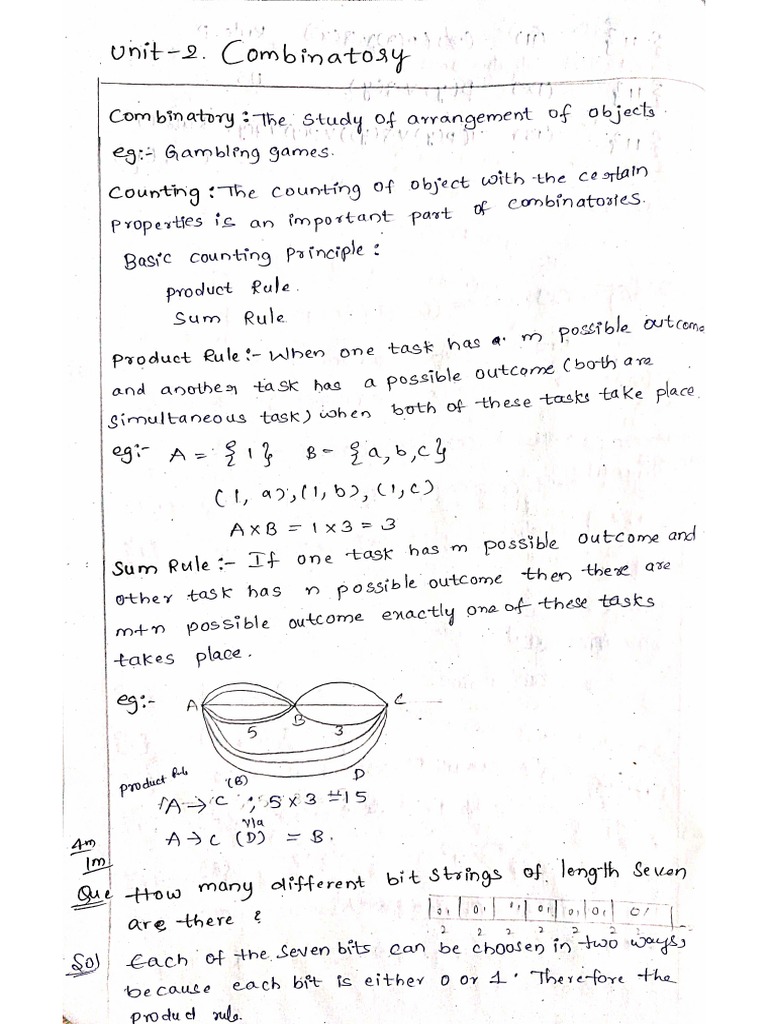 Unit-2. Combinatory
Combinatory: The Study of arrangement of objects.
eg:- Gambling games.
Counting: The counting of object with the certain
properties is an important part of combinatories.
Basic counting Principle:
product Rule.
Sum Rule
Product Rule:- When one task has m possible outcome
and another task has a possible outcome (both are
simultaneous task) when both of these tasks take place.
eg:- A = {1} B = {a,b,c}
(1, a), (1, b), (1, c)
A x B = 1 x 3 = 3
Sum Rule:- If one task has m possible outcome and
other task has n possible outcome then there are
m+n possible outcome exactly one of these tasks
takes place.
eg:- A B C
5 3
D
product Rule (B)
A → C ; 5 x 3 = 15
via
A → C (D) = B.
4m
1m
Que How many different bit strings of length Seven
are there ?
0, 0, 0, 0, 0, 0, 0/
2 2 2 2 2 2 2
Sol Each of the Seven bits can be choosen in two ways,
because each bit is either 0 or 1. Therefore the
product rule.